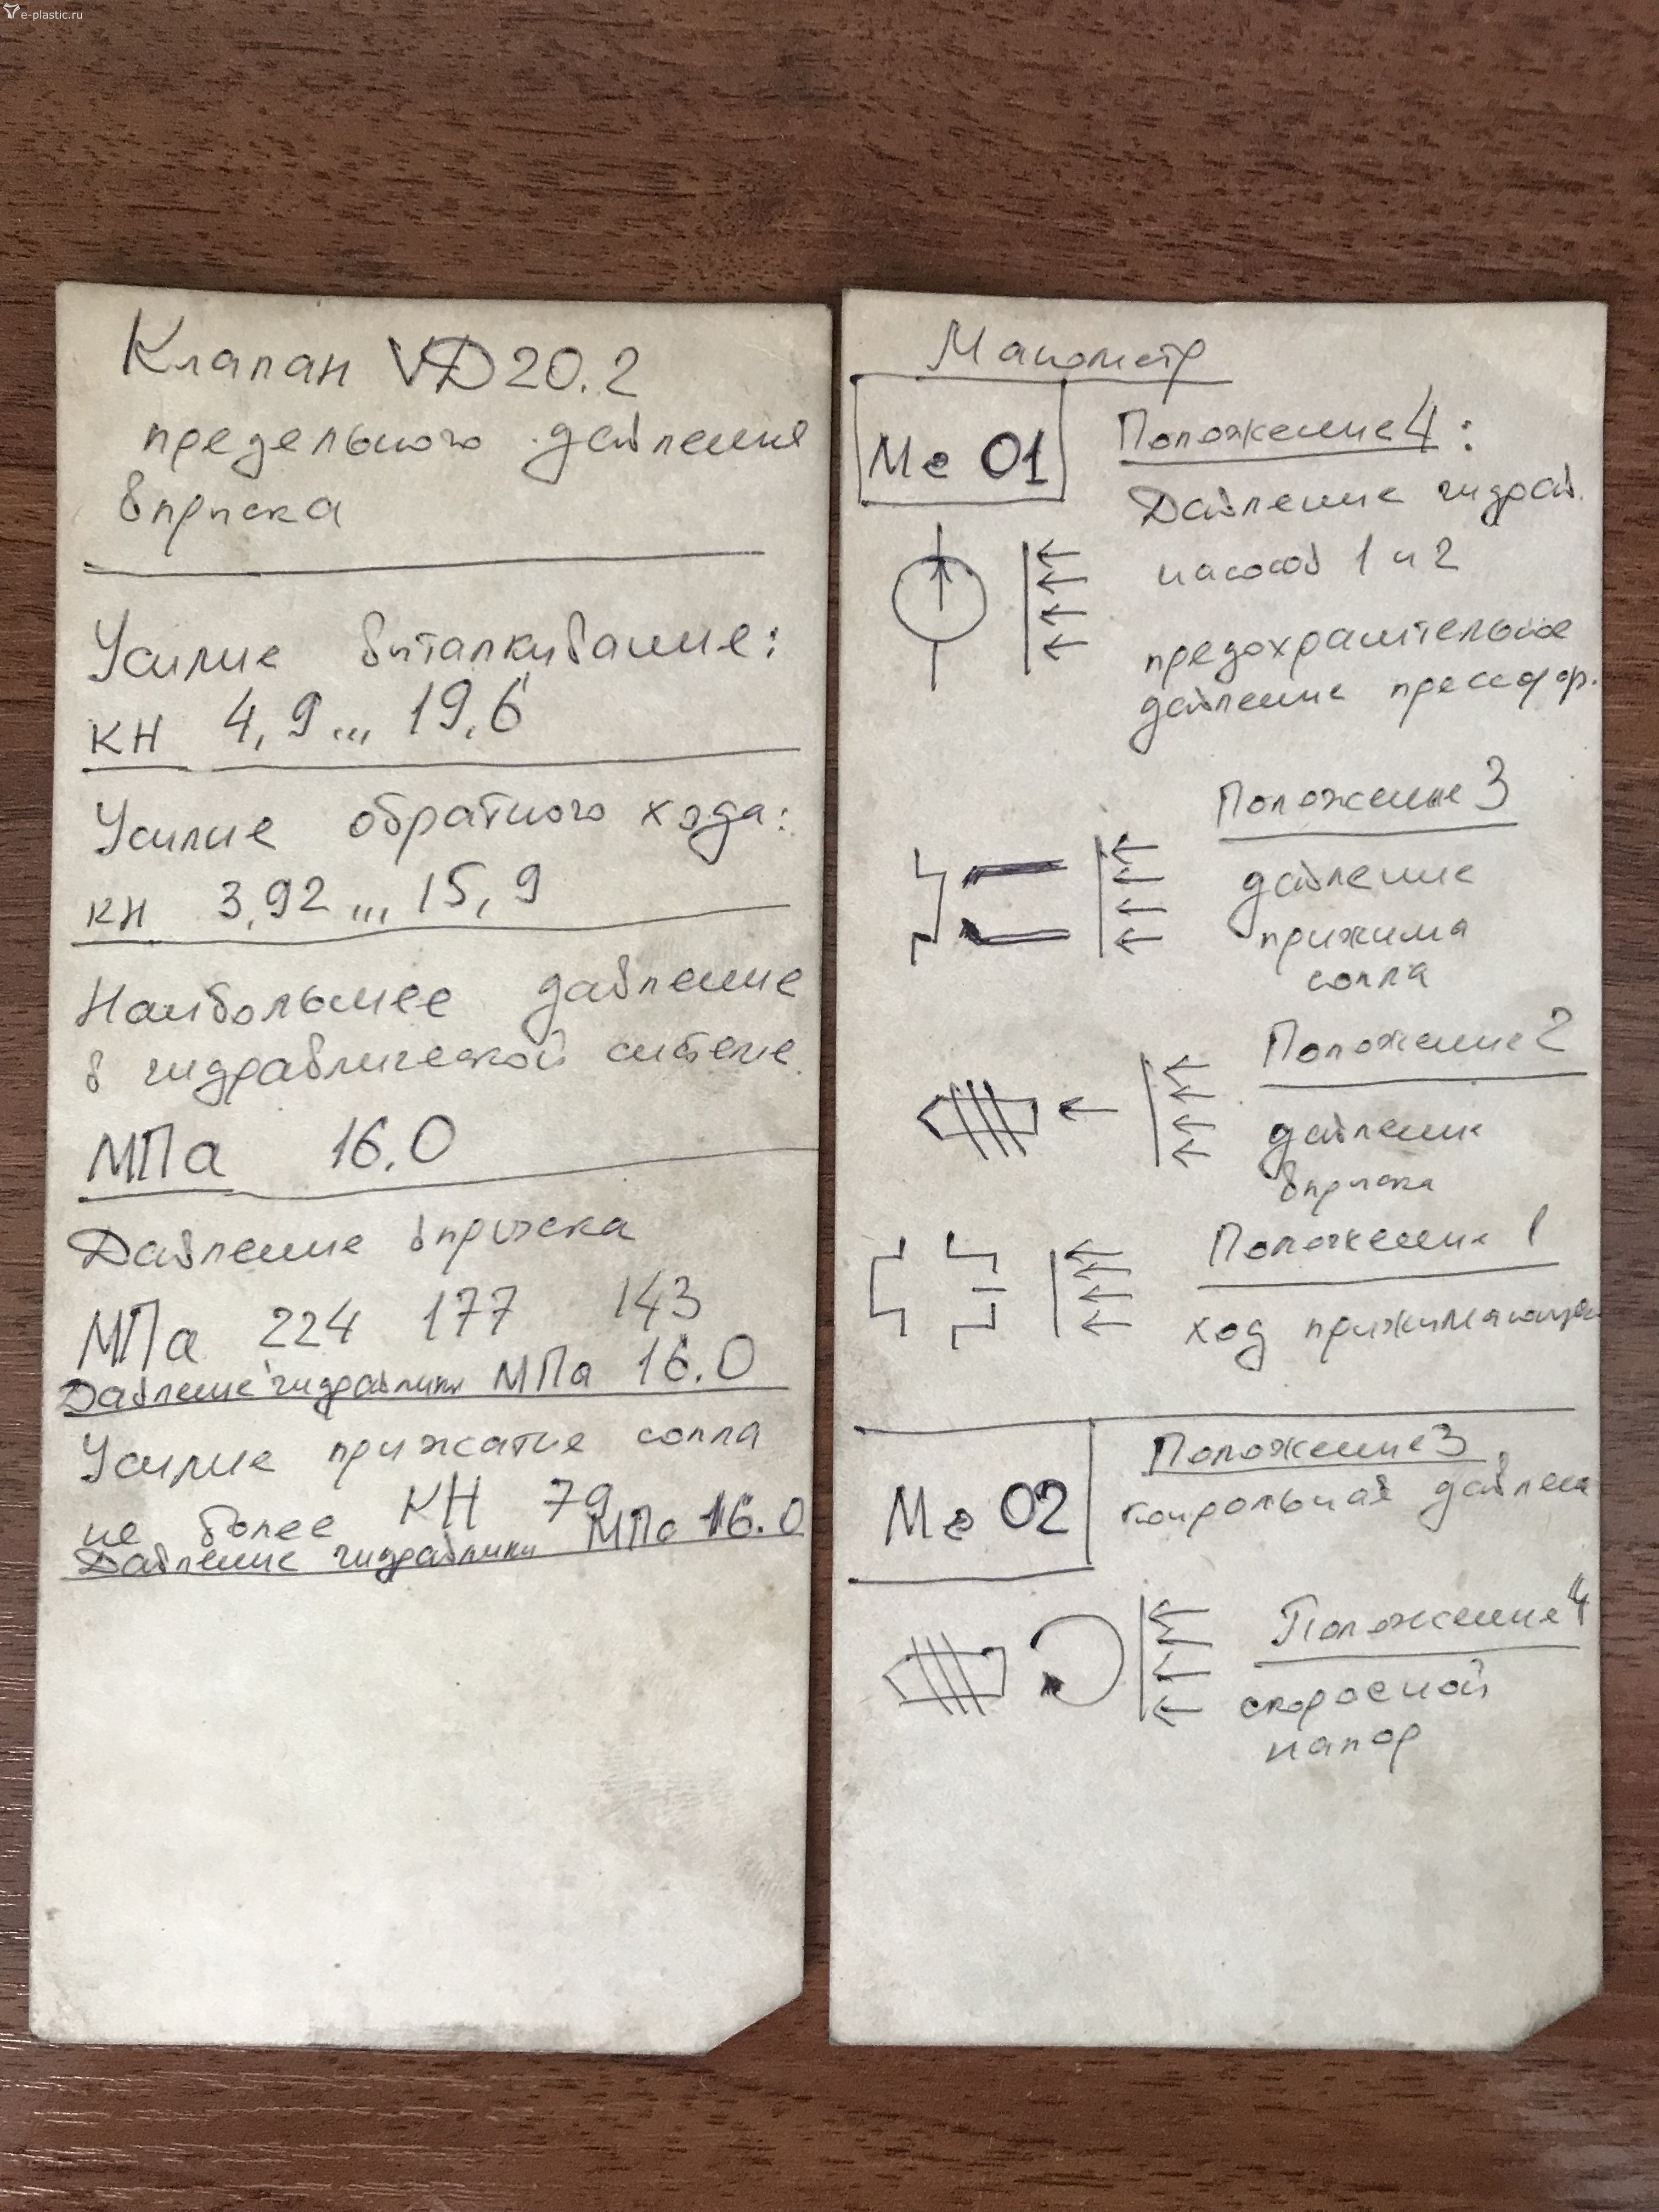 e-plastic.ru
Клапан VD 20.2
предельного давления
впрыска
Усилие виталкивание:
КН 4,9 ... 19,6
Усилие обратного хода:
КН 3,92 ... 15,9
Наибольшее давление
в гидравлической системе
МПа 16.0
Давление впрыска
МПа 224 177 143
Давление гидравлики МПа 16.0
Усилие прижатие сопла
не более КН 79
Давление гидравлики МПа 16.0
Манометр
Ме 01
Положение 4:
Давление гидрав.
насосов 1 и 2
предохранительное
давление прессфор.
Положение 3
давление
прижима
сопла
Положение 2
давление
впрыска
Положение 1
ход прижимающей
Ме 02
Положение 3
давлен
Положение 4
скоросной
напор